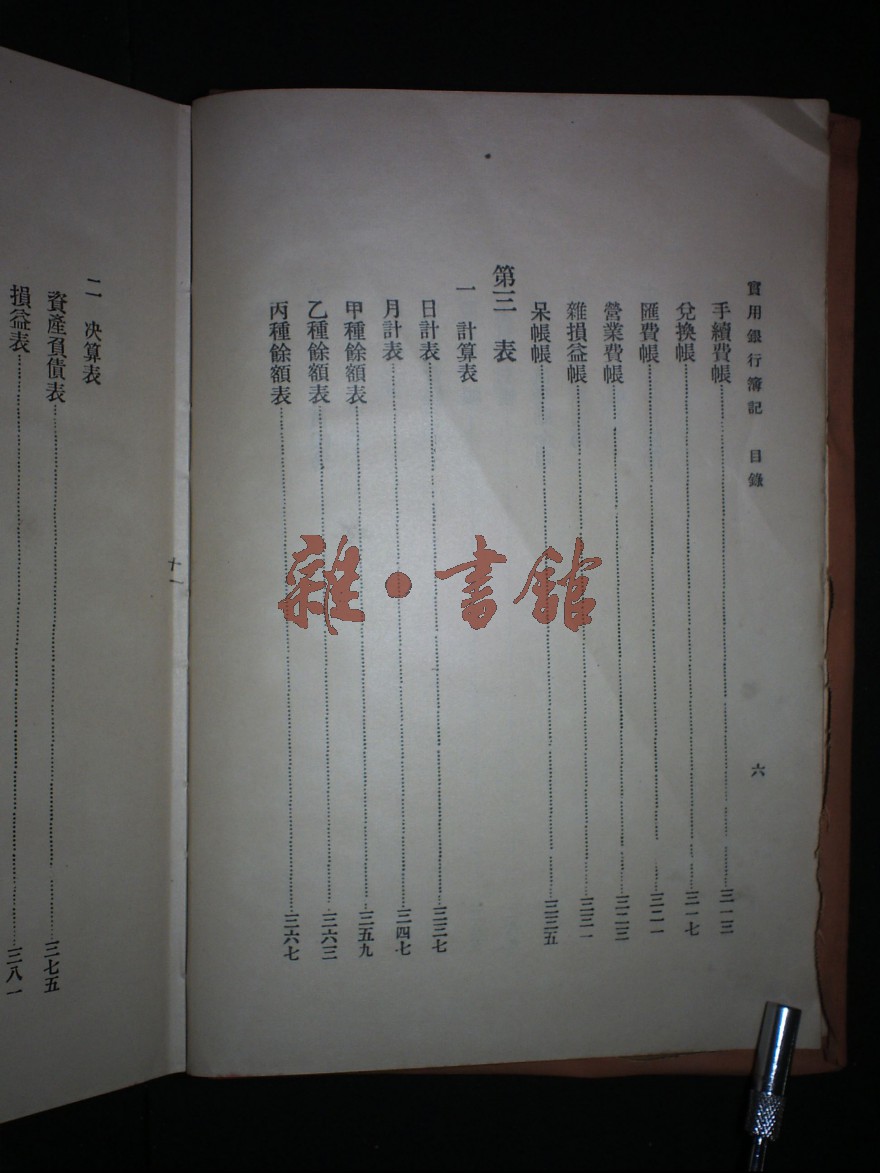 實用銀行簿記 目錄 六
手續費帳 三一三
兌換帳 三一七
匯費帳 三二一
營業費帳 三二三
雜損益帳 三三一
呆帳帳 三三五
第三 表
一 計算表
日計表 三三七
月計表 三四七
甲種餘額表 三五九
乙種餘額表 三六三
丙種餘額表 三六七
十一
二 決算表
資產負債表 三七五
損益表 三八一
雜·書館